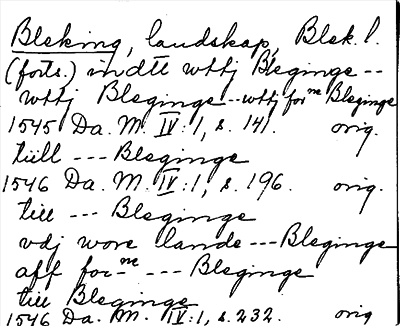 Bleking, landskap, Blek. l.
(forts.) indtt wttj Bleginge --
wttj Bleginge -- wttj for ne Bleginge
1545 Da. M. IV:1, s. 141. orig.
tiill --- Bleginge
1546 Da. M. IV:1, s. 196. orig.
till --- Bleginge
vdj wore lande --- Bleginge
aff for- ne --- Bleginge
till Bleginge
1546 Da. M. IV:1, s. 232. orig